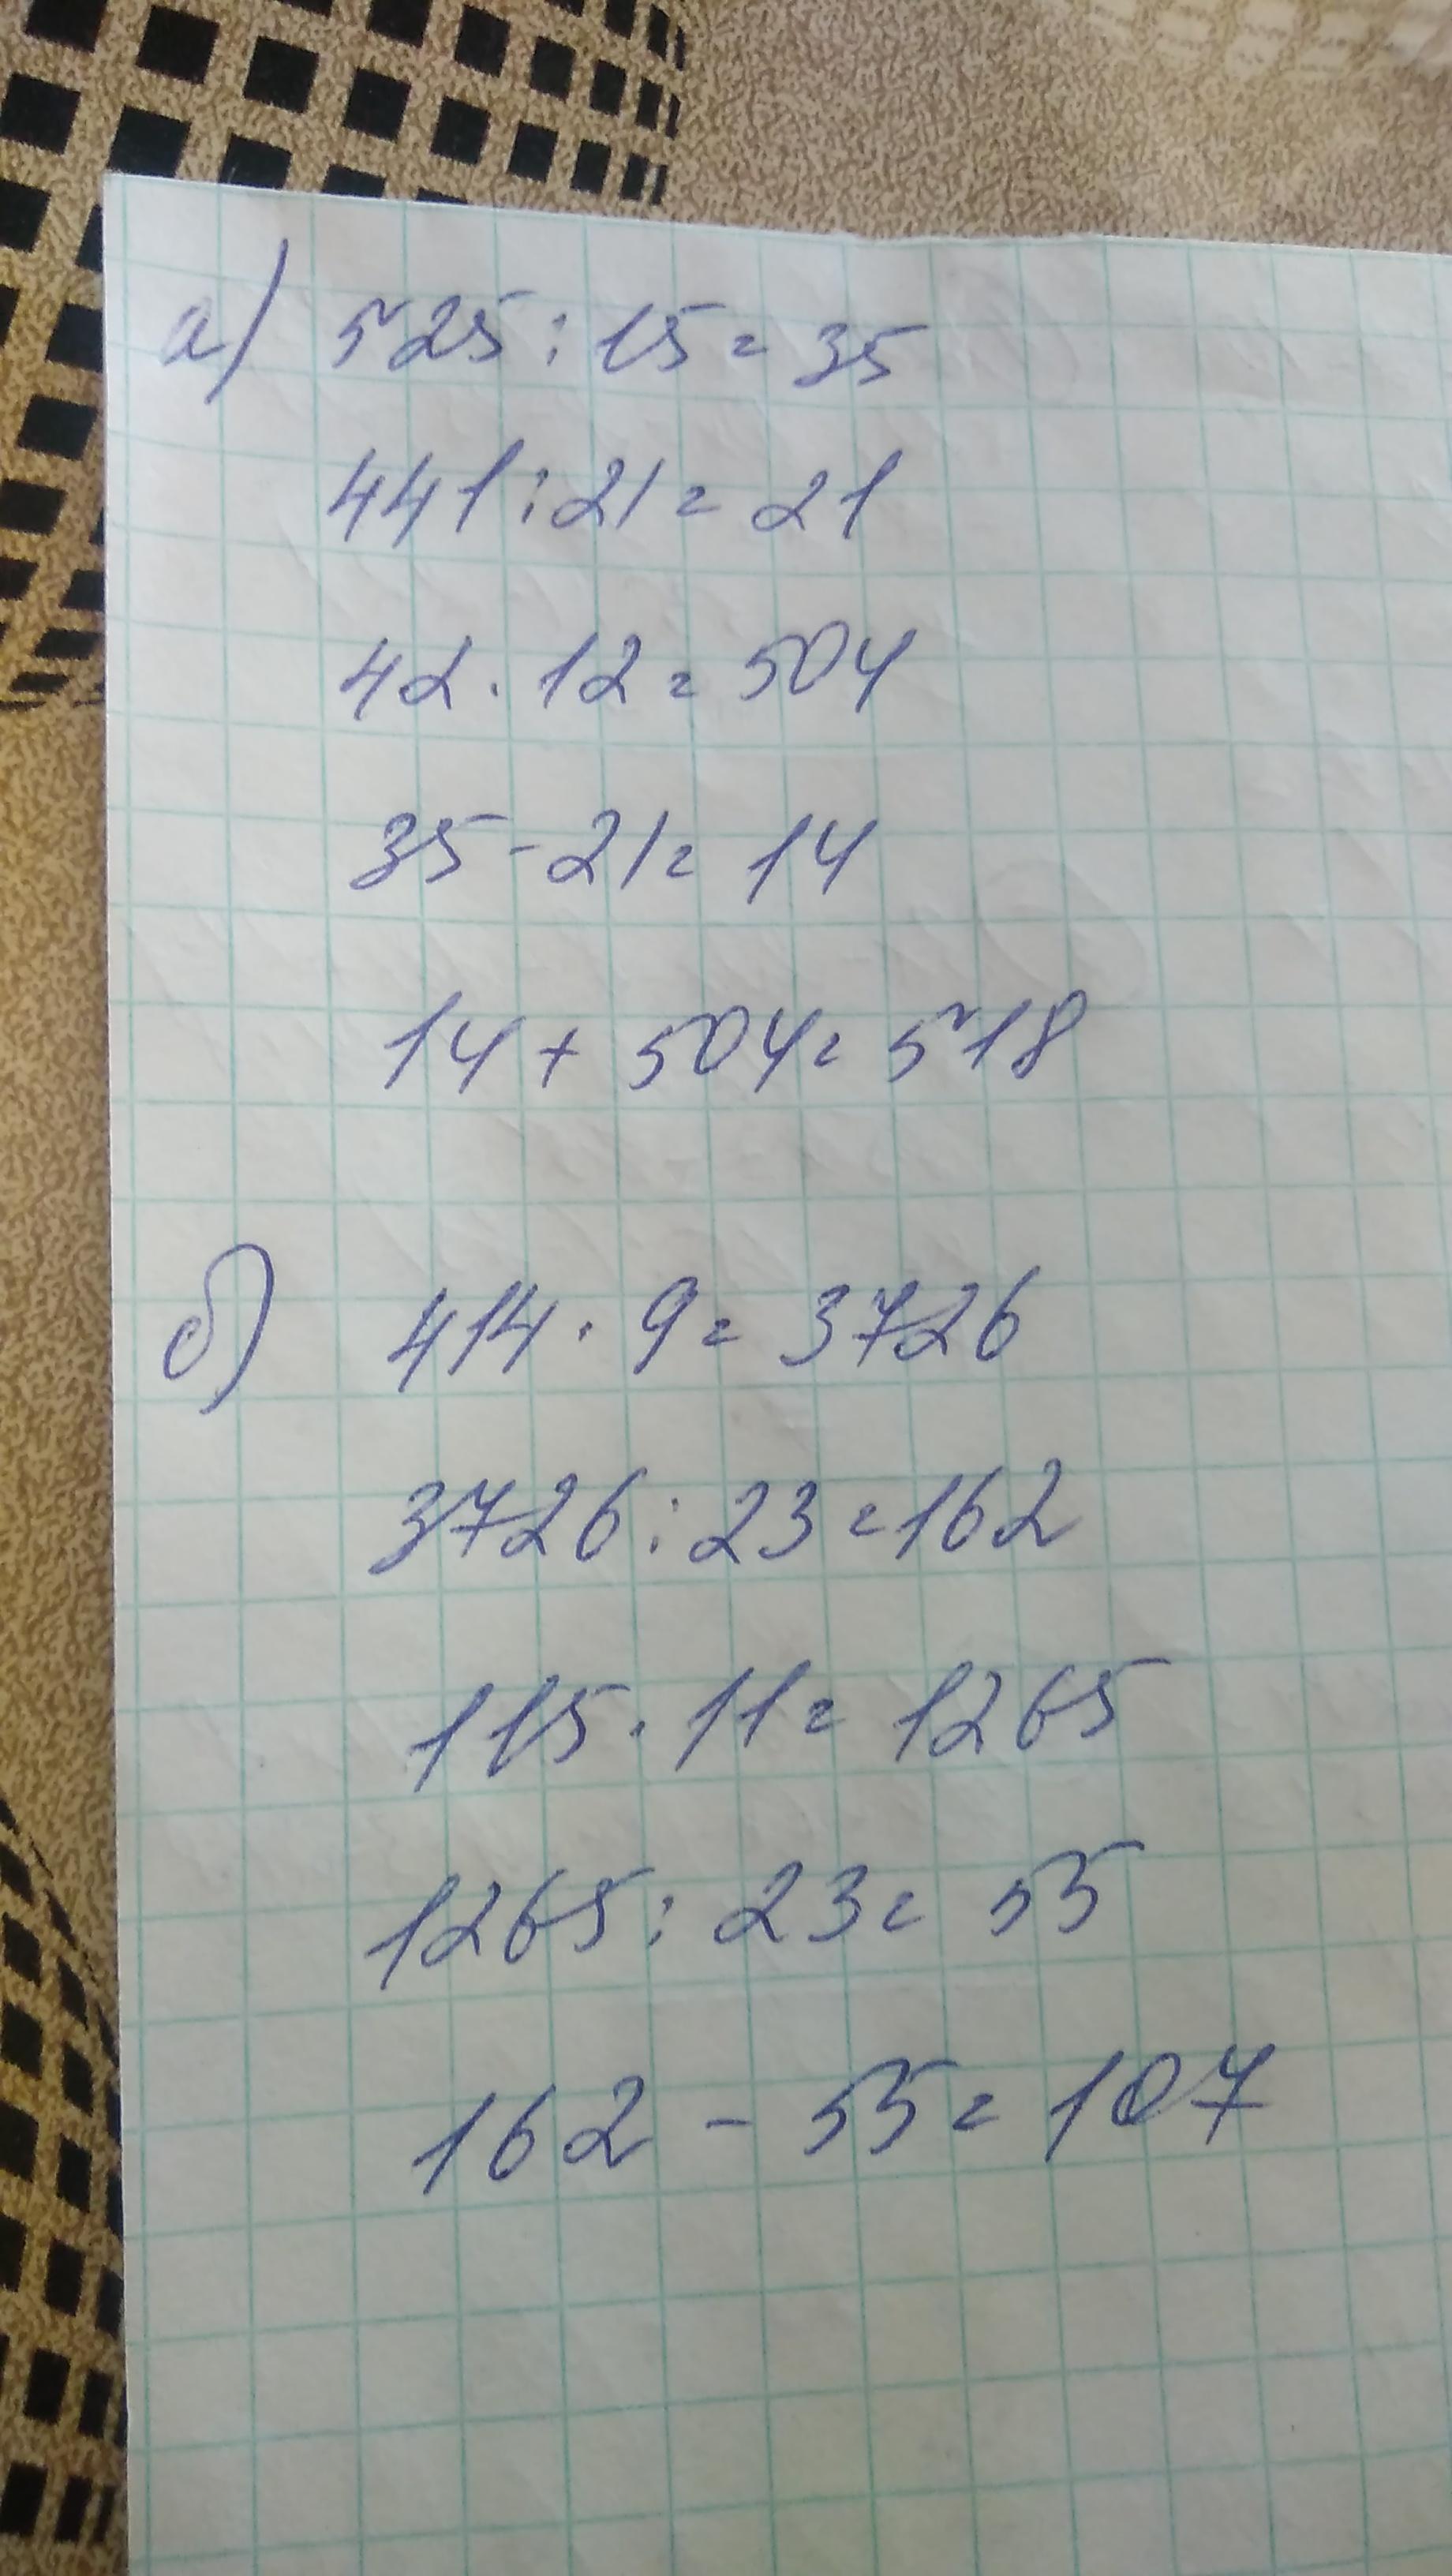 а) 525 : 15 = 35
441 : 21 = 21
42 · 12 = 504
35 - 21 = 14
14 + 504 = 518
б) 414 · 9 = 3726
3726 : 23 = 162
115 · 11 = 1265
1265 : 23 = 55
162 - 55 = 107